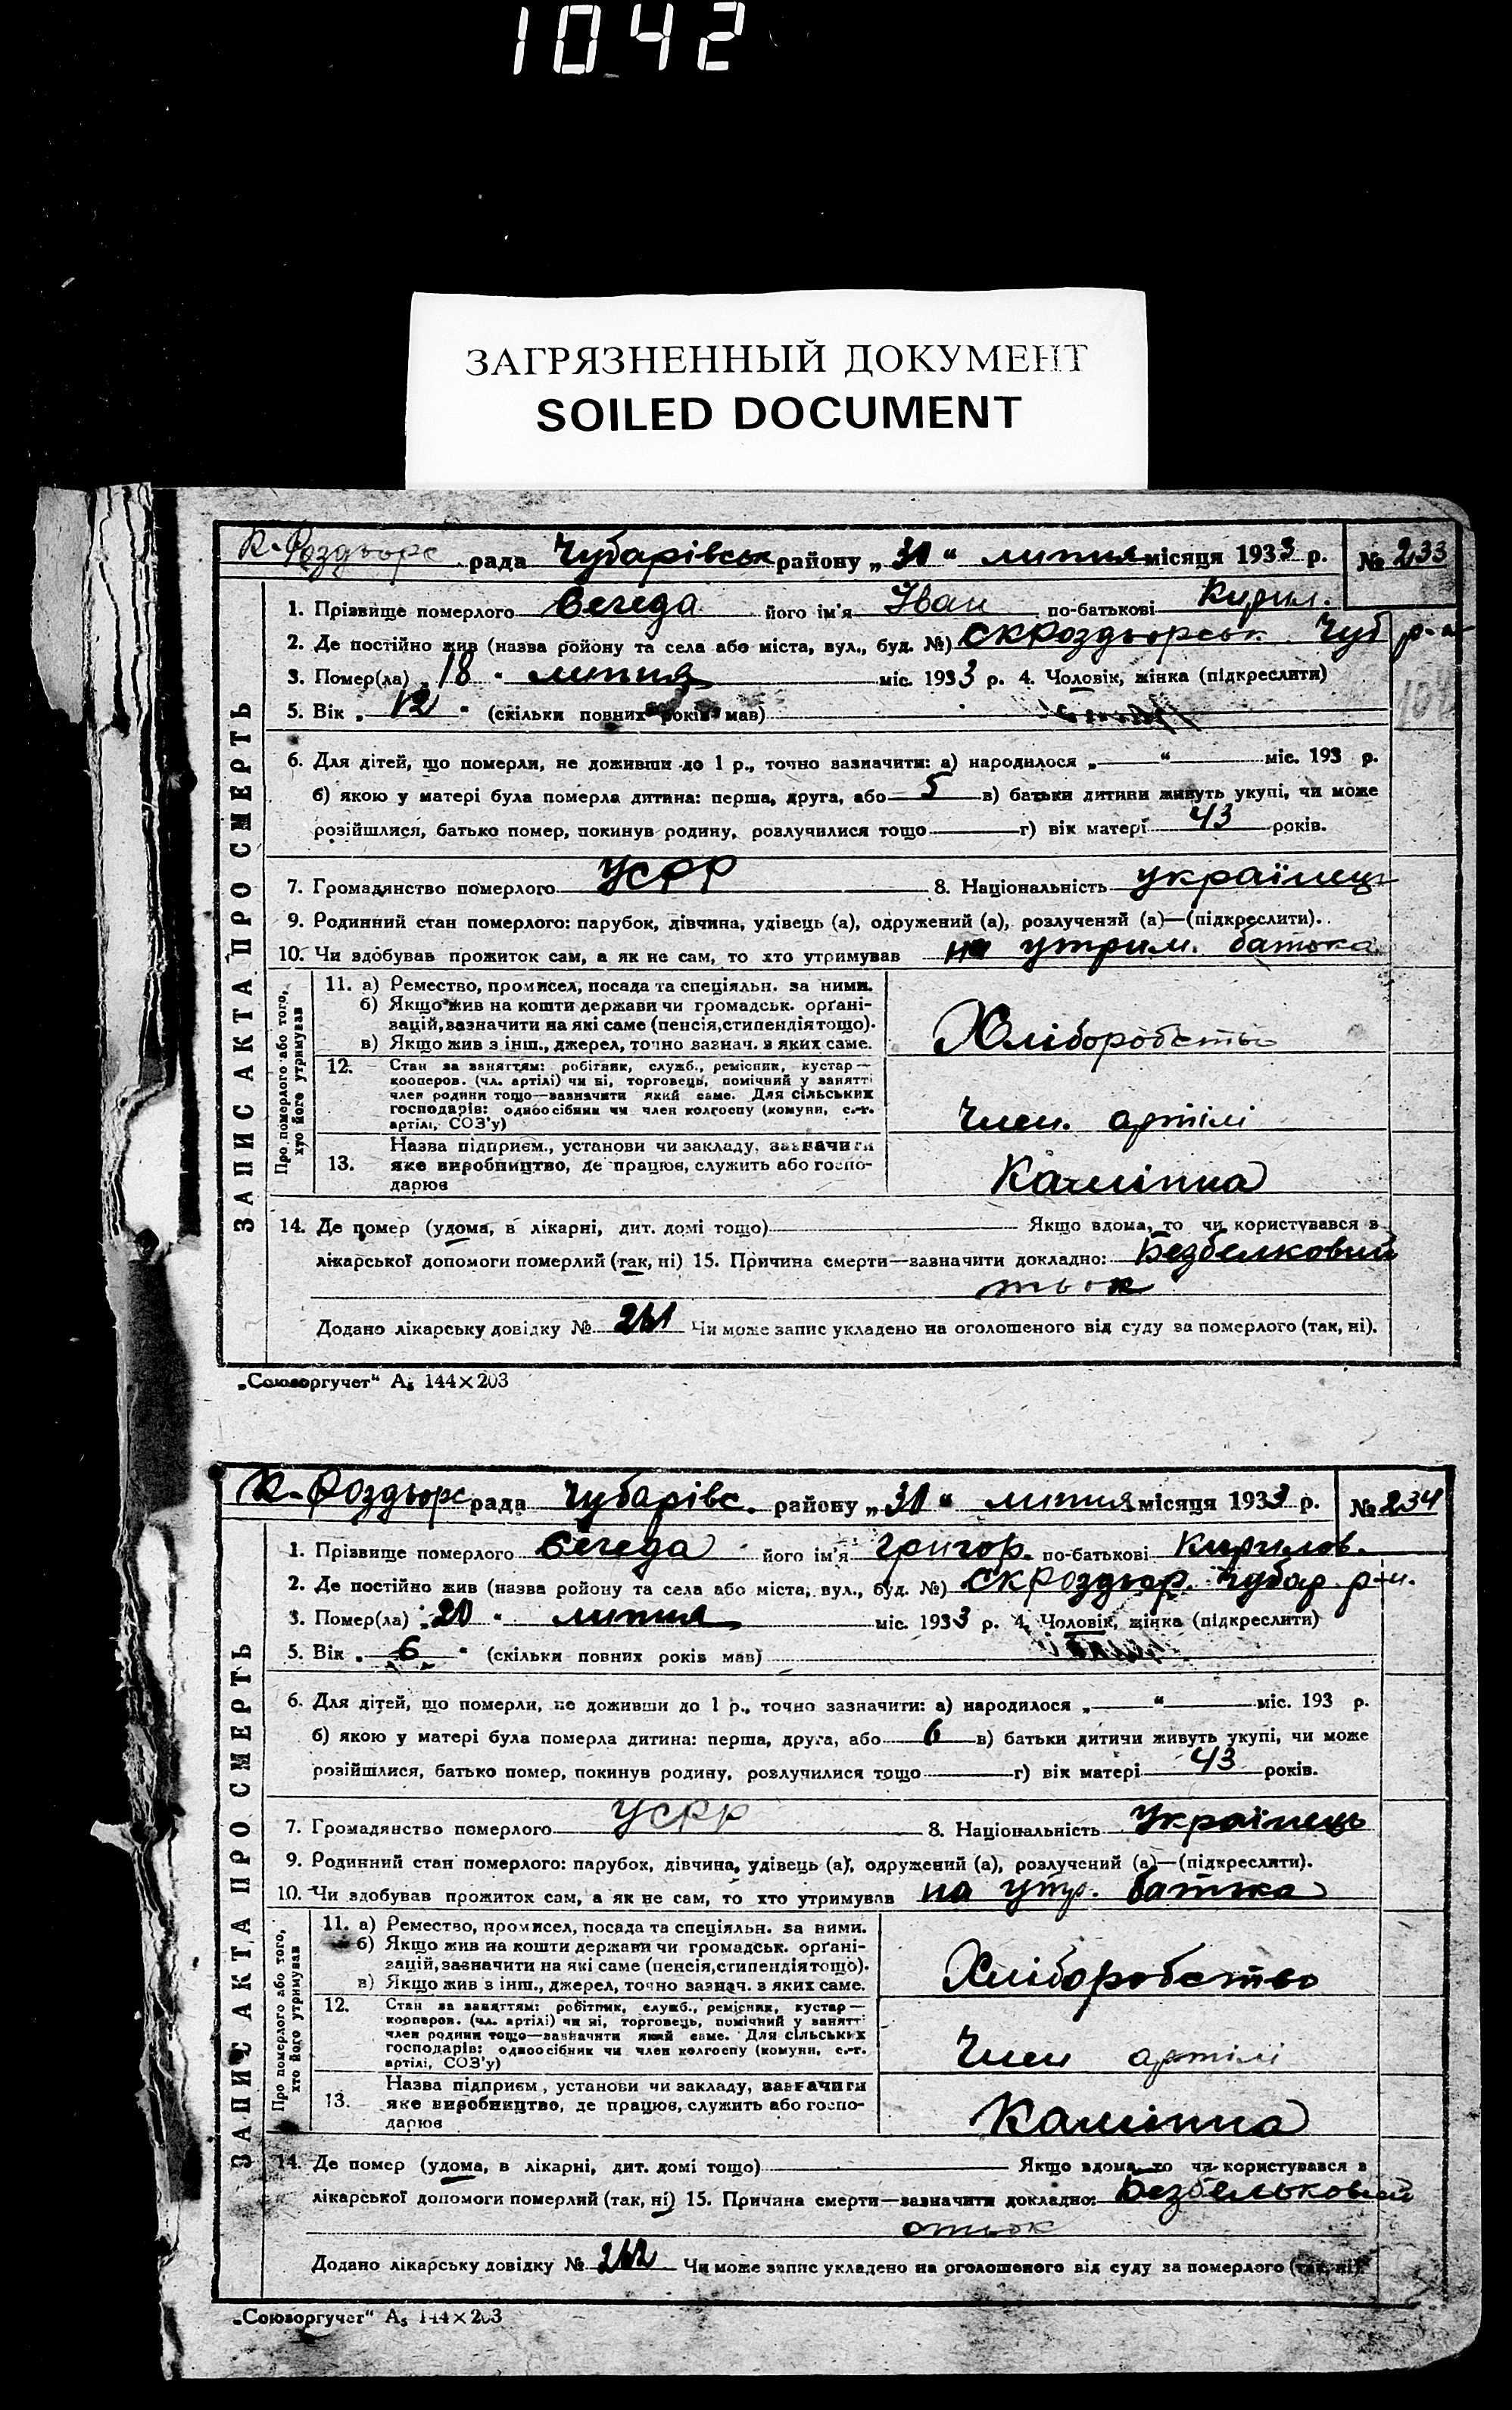 1042
ЗАГРЯЗНЕННЫЙ ДОКУМЕНТ
SOILED DOCUMENT
К-Роздорс рада Чубарівськ району „31“ липня місяця 1933 р. № 233
ЗАПИС АКТА ПРО СМЕРТЬ
1. Прізвище померлого Вегеда його ім'я Іван по-батькові Кирил.
2. Де постійно жив (назва ройону та села або міста, вул., буд. №) Чуб р-н
3. Помер(ла) „18 " липня міс. 1933 р. 4. Чоловік, жінка (підкреслити)
5. Вік „ 12 " (скільки повних років мав)
6. Для дітей, що померли, не доживши до 1 р., точно зазначити: а) народилося „ “ міс. 193 р.
б) якою у матері була померла дитина: перша, друга, або 5 в) батьки дитини живуть укупі, чи може
розійшлися, батько помер, покинув родину, розлучилися тощо г) вік матері 43 років.
7. Громадянство померлого УСРР 8. Національність українець
9. Родинний стан померлого: парубок, дівчина, удівець (а), одружений (а), розлучений (а)—(підкреслити).
10. Чи здобував прожиток сам, а як не сам, то хто утримував на утрим. батька
Про померлого або того, хто його утримував
11. а) Ремество, промисел, посада та спеціяльн. за ними.
б) Якщо жив на кошти держави чи громадськ. орґані-
зацій, зазначити на які саме (пенсія, стипендія тощо).
в) Якщо жив з інш., джерел, точно зазнач. з яких саме.
Хліборобство
12. Стан за заняттям: робітник, служб., ремісник, кустар—
кооперов. (чл. артілі) чи ні, торговець, помічний у занятті
член родини тощо—зазначити який саме. Для сільських
господарів: одноосібник чи член колгоспу (комуни, с.-г.
артілі, СОЗ'у)
Член. артілі
Назва підприєм., установи чи закладу, зазначити
13. яке виробництво, де працює, служить або госпо-
дарює
Калініна
14. Де помер (удома, в лікарні, дит. домі тощо) Якщо вдома, то чи користувався з
лікарської допомоги померлий (так, ні) 15. Причина смерти—зазначити докладно: Безбелковий
тьок
Додано лікарську довідку № 261 Чи може запис укладено на оголошеного від суду за померлого (так, ні).
„Союзоргучет“ А5 144×203
К-Роздорс рада Чубарівс. району „31“ липня місяця 1933 р. № 234
ЗАПИС АКТА ПРО СМЕРТЬ
1. Прізвище померлого Вегеда його ім'я Григор. по-батькові Кирилов.
2. Де постійно жив (назва ройону та села або міста, вул., буд. №) Чубар р-н.
3. Помер(ла) „20 " липня міс. 1933 р. 4. Чоловік, жінка (підкреслити)
5. Вік „ 6 " (скільки повних років мав)
6. Для дітей, що померли, не доживши до 1 р., точно зазначити: а) народилося „ “ міс. 193 р.
б) якою у матері була померла дитина: перша, друга, або 6 в) батьки дитини живуть укупі, чи може
розійшлися, батько помер, покинув родину, розлучилися тощо г) вік матері 43 років.
7. Громадянство померлого УСРР 8. Національність Українець
9. Родинний стан померлого: парубок, дівчина, удівець (а), одружений (а), розлучений (а)—(підкреслити).
10. Чи здобував прожиток сам, а як не сам, то хто утримував на утр. батька
Про померлого або того, хто його утримував
11. а) Ремество, промисел, посада та спеціяльн. за ними.
б) Якщо жив на кошти держави чи громадськ. орґані-
зацій, зазначити на які саме (пенсія, стипендія тощо).
в) Якщо жив з інш., джерел, точно зазнач. з яких саме.
Хліборобство
12. Стан за заняттям: робітник, служб., ремісник, кустар—
кооперов. (чл. артілі) чи ні, торговець, помічний у занятті
член родини тощо—зазначити який саме. Для сільських
господарів: одноосібник чи член колгоспу (комуни, с.-г.
артілі, СОЗ'у)
Член артілі
Назва підприєм., установи чи закладу, зазначити
13. яке виробництво, де працює, служить або госпо-
дарює
Калініна
14. Де помер (удома, в лікарні, дит. домі тощо) Якщо вдома, то чи користувався з
лікарської допомоги померлий (так, ні) 15. Причина смерти—зазначити докладно: Безбельковий
отьок
Додано лікарську довідку № 262 Чи може запис укладено на оголошеного від суду за померлого (так, ні).
„Союзоргучет“ А5 144×203